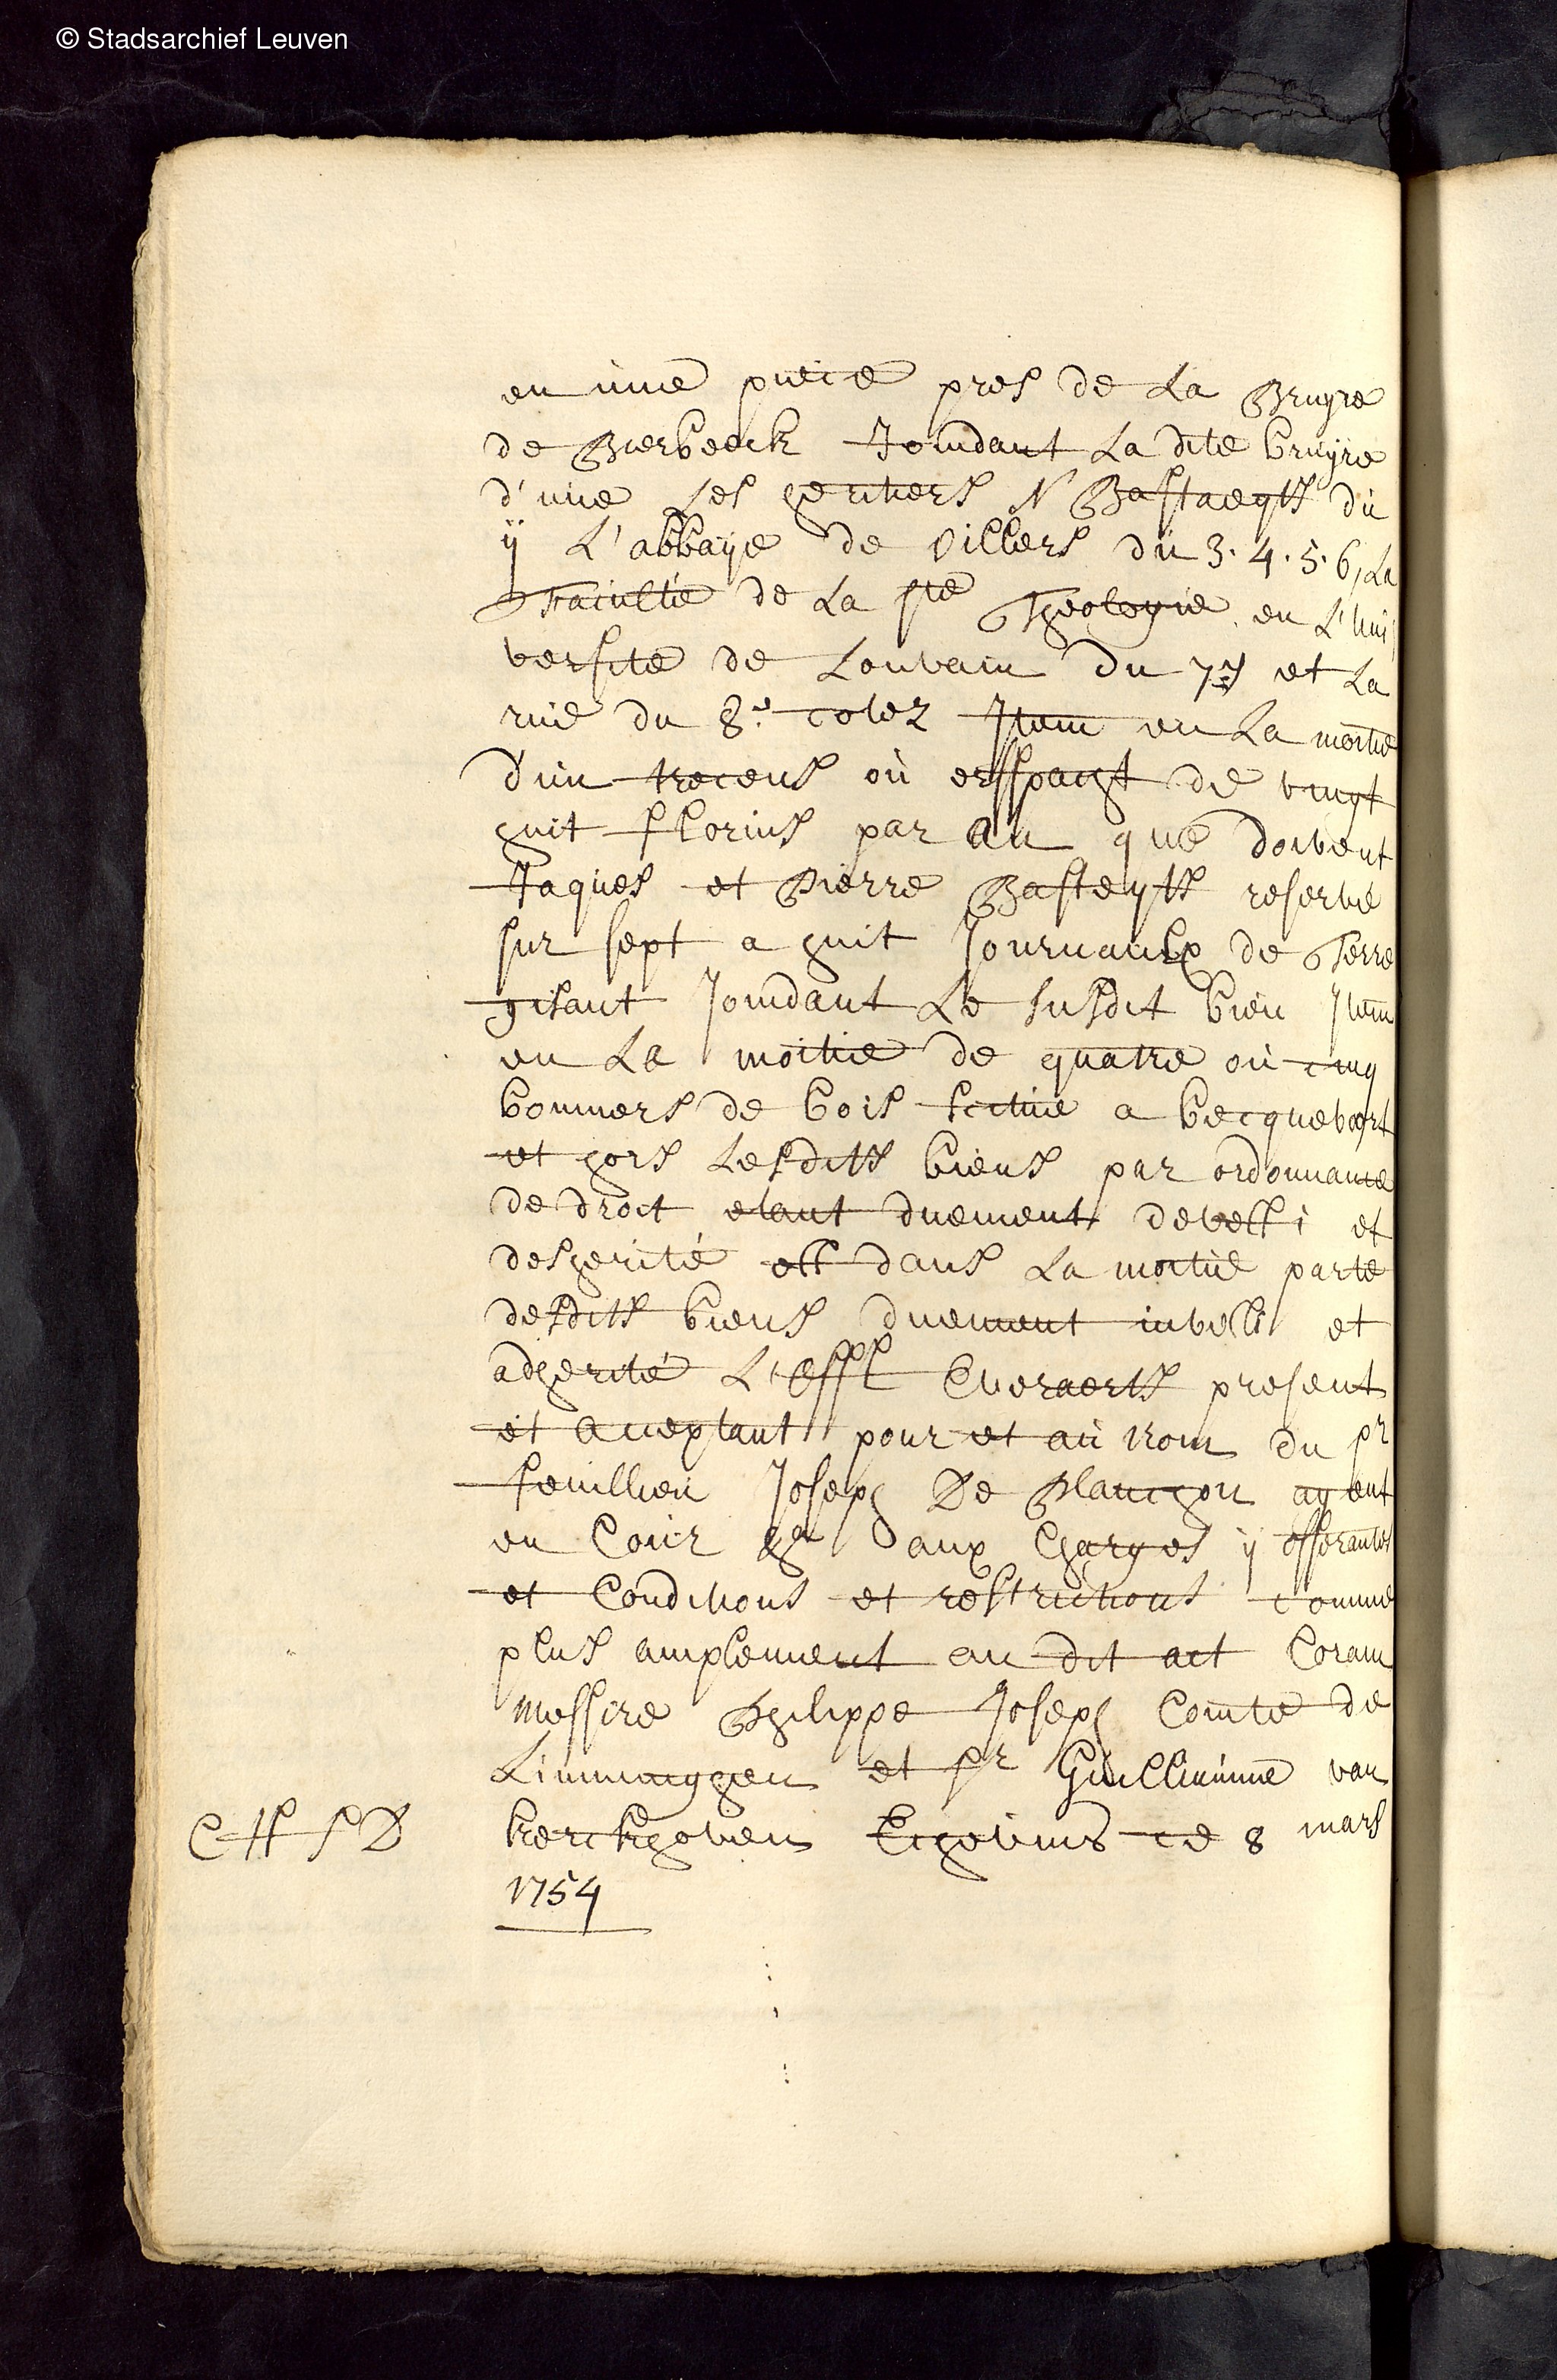 © Stadsarchief Leuven
en une pieice pres de La Bruyre
de Bierbeeck Joindant La dite bruyre
d'une Les heritiers N Bastaeyts du
ij L'abbaije de villers du 3. 4. 5. 6, La
Faculté de La ste Theologie en L'uni
versité de Louvain du 7e et La
ruie du 8e cotez Item en La moitie
d'un trecens où erffpacht de vingt
huit florins par an que doivent
Jaques et Pierre Basteyts reservé
sur sept a huit Journaulx de Terre
gisant Joindant Le susdit bien Item
en La moitie de quatre où cinq
bonniers de bois scitué a becquevoort
et hors Lesdits biens par ordonnance
de droit etant duement devesti et
desherité est dans La moitie parte
desdits biens duement investi et
adherité L'offl Everaerts present
et acceptant pour et au nom du sr
feuillien Joseph De Planchon agent
en Cour &a aux Charges ij offerantes
et Conditions et restrictions comme
plus amplement au dit act Coram
Messire Philippe Joseph Comte de
Limminghen et sr Guilliaume van
kerckhoven Eschevins ce 8 mars
1754